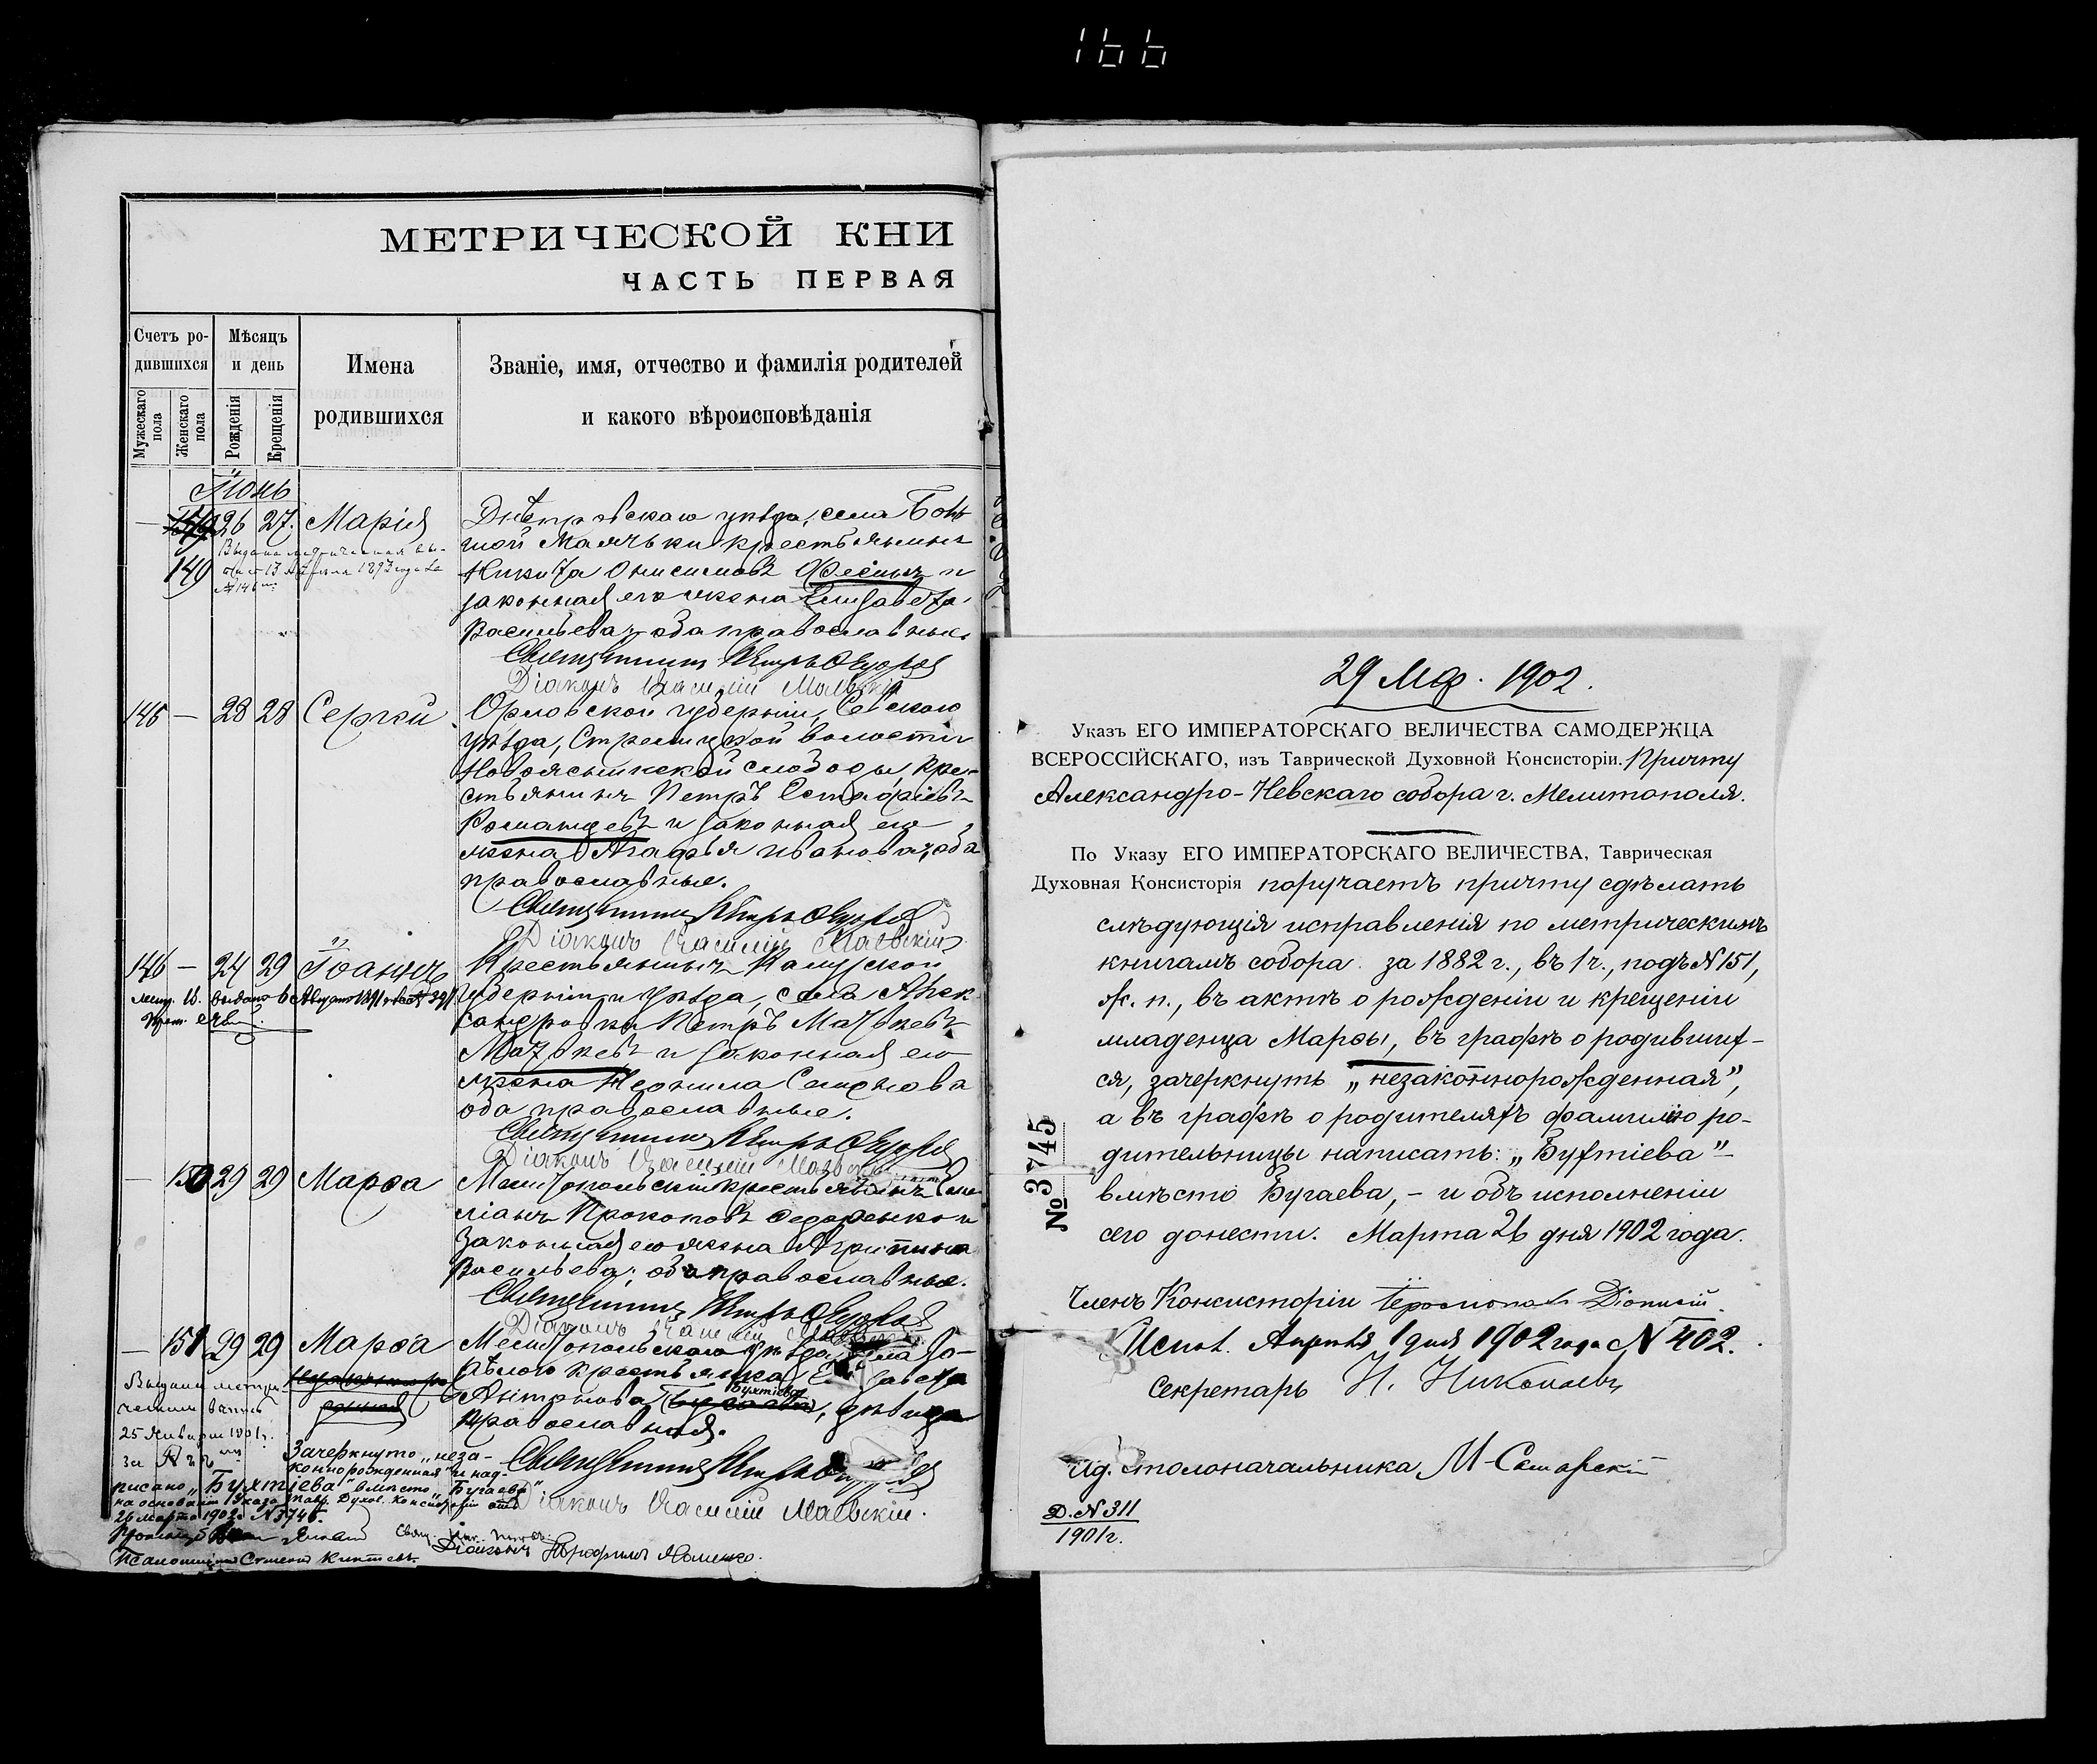 166
МЕТРИЧЕСКОЙ КНИ
ЧАСТЬ ПЕРВАЯ
Счетъ ро-
дившихся
Мужескаго
пола
Женскаго
пола
Мѣсяцъ
и день
Рожденія
Крещенія
Имена
родившихся
Званіе, имя, отчество и фамилія родителей
и какого вѣроисповѣданія
Іюнь
— 149 26 27. Марія
Днѣпровскаго уѣзда, села Боль
шой Маячьки крестьянинъ
Никита Онисимовъ и
законная его жена Елисавета
Васильева, оба православные.
Священникъ Петръ
Діаконъ Василій Маевскій
145 — 28 28 Сергѣй
Орловской губерніи, Севскаго
уѣзда, Стрелецкой волости
слободы, кре-
стьянинъ Петръ Естафіевъ
Романцевъ и законная его
жена Агафья Иванова, оба
православные.
Священникъ Петръ
Діаконъ Василій Маевскій
146 — 24 29 Іоаннъ
Крестьянинъ Калужской
губерніи и уѣзда, села Алек
сандровки Петръ Матвѣевъ
Матвѣевъ и законная его
жена Неонила Семенова
оба православные.
Священникъ Петръ
Діаконъ Василій
— 150 29 29 Марѳа
Мелитопольскій крестьянинъ Еме
ліанъ Прокоповъ Федоренко и
законная его жена Агрипина
Васильева; оба православные.
Священникъ Петръ
Діаконъ Василій
— 151 29 29 Марѳа
Мелитопольскаго уѣзда,
крестьянка
Бухтіева
дѣвица
православная.
Священникъ Петръ
Діаконъ Василій Маевскій.
25 Января 1901г.
Зачеркнуто „неза-
коннорожденная" и над-
писано „Бухтіева" вмѣсто „Бугаева"
на основаніи Указа Тавр. Духов. Консисторіи отъ
26 марта 1902г. N 3745.
29 Мар. 1902.
Указъ ЕГО ИМПЕРАТОРСКАГО ВЕЛИЧЕСТВА САМОДЕРЖЦА
ВСЕРОССІЙСКАГО, изъ Таврической Духовной Консисторіи. Причту
Александро-Невскаго собора г. Мелитополя.
По Указу ЕГО ИМПЕРАТОРСКАГО ВЕЛИЧЕСТВА, Таврическая
Духовная Консисторія поручаетъ причту сдѣлать
слѣдующія исправленія по метрическимъ
книгамъ собора за 1882 г., въ 1 ч., подъ N 151,
ж. п., въ актѣ о рожденіи и крещеніи
младенца Марѳы, въ графѣ о родивших-
ся, зачеркнуть „незаконнорожденная",
а въ графѣ о родителяхъ фамилію ро-
дительницы написать: „Бухтіева" –
вмѣсто Бугаева, – и объ исполненіи
сего донести. Марта 26 дня 1902 года.
№ 3745
Членъ Консисторіи Іеромонахъ Діонисій.
Испол. Апрѣля 1 дня 1902 года N 402.
Секретарь Н. Николаевъ
Ид. столоначальника М. Самарскій
Д. N 311
1901 г.